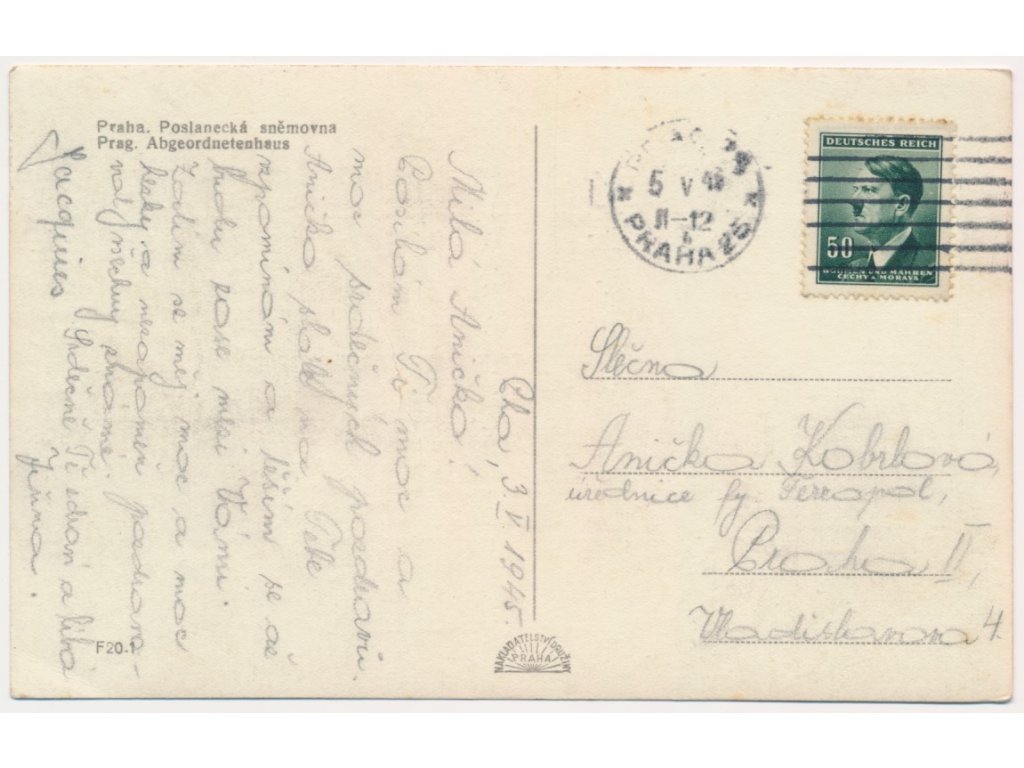 Praha. Poslanecká sněmovna
Prag. Abgeordnetenhaus
Pha, 3. V. 1945.
Milá Aničko!
Posílám Ti moc a
moc srdečných pozdravů.
Aničko stále na Tebe
vzpomínám a těším se až
budu zase mezi Vámi.
Zatím se měj moc a moc
hezky a nezapomeň pozdravo-
vat všechny známé.
Srdečně Tě zdraví a líbá
Jiřina.
Jacquies
F20.1
NAKLADATELSTVÍ DRUŽINY
PRAHA
5 V 45
11-12
PRAHA 25
DEUTSCHES REICH
50
BÖHMEN UND MÄHREN
ČECHY A MORAVA
Slečna
Anička Kobrlová,
úřednice fy. Ferropol,
Praha II,
Vladislavova 4.